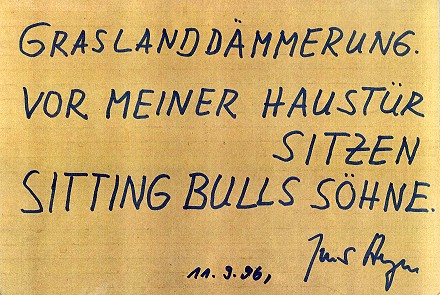 GRASLANDDÄMMERUNG.
VOR MEINER HAUSTÜR
SITZEN
SITTING BULLS SÖHNE.
11.9.96,